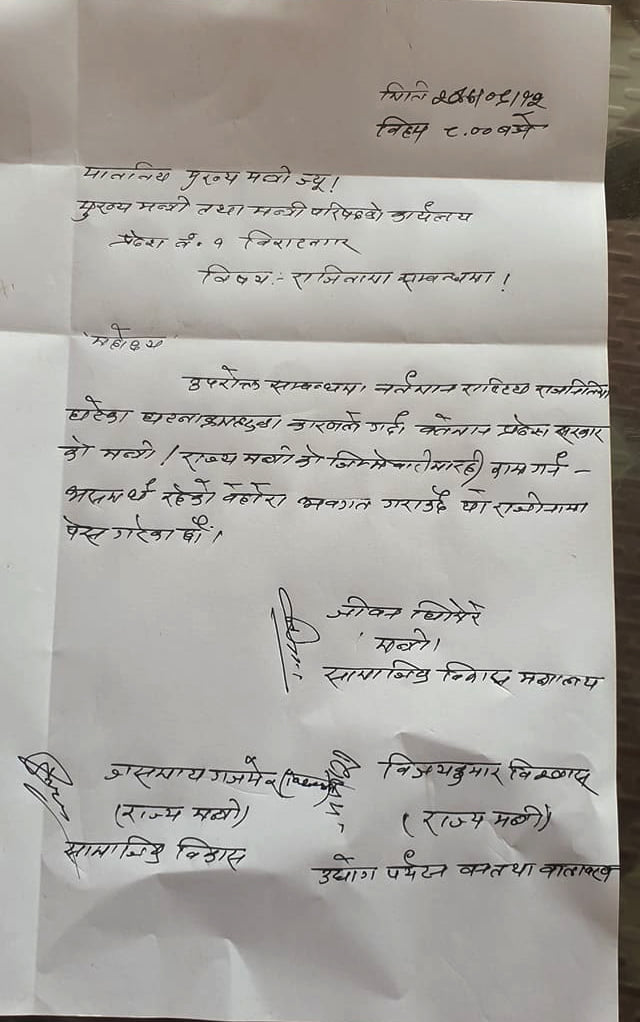 मिति २०७७/०९/१२
विहान ८.०० बजे
माननिय मुख्य मन्त्री ज्यू!
मुख्य मन्त्री तथा मन्त्री परिषदको कार्यालय
प्रदेश नं. १ विराटनगर
विषय:- राजिनामा सम्बन्धमा!
महोदय
उपरोक्त सम्बन्धमा वर्तमान राष्ट्रिय राजनितिमा
घटेका घटना कारणले गर्दा वर्तमान प्रदेश सरकार
को मन्त्री / राज्य मन्त्री को जिम्मेवारीमा रही काम गर्न -
असमर्थ रहेको बेहोरा अवगत गराउदै यो राजीनामा
पेस गरेका छौं।
जीवन घिमिरे
मन्त्री।
सामाजिक विकास मन्त्रालय
जसमाया गजमेर
(राज्य मन्त्री)
सामाजिक विकास
विजयकुमार विश्वास
(राज्य मन्त्री)
उद्योग पर्यटन वन तथा वातावरण